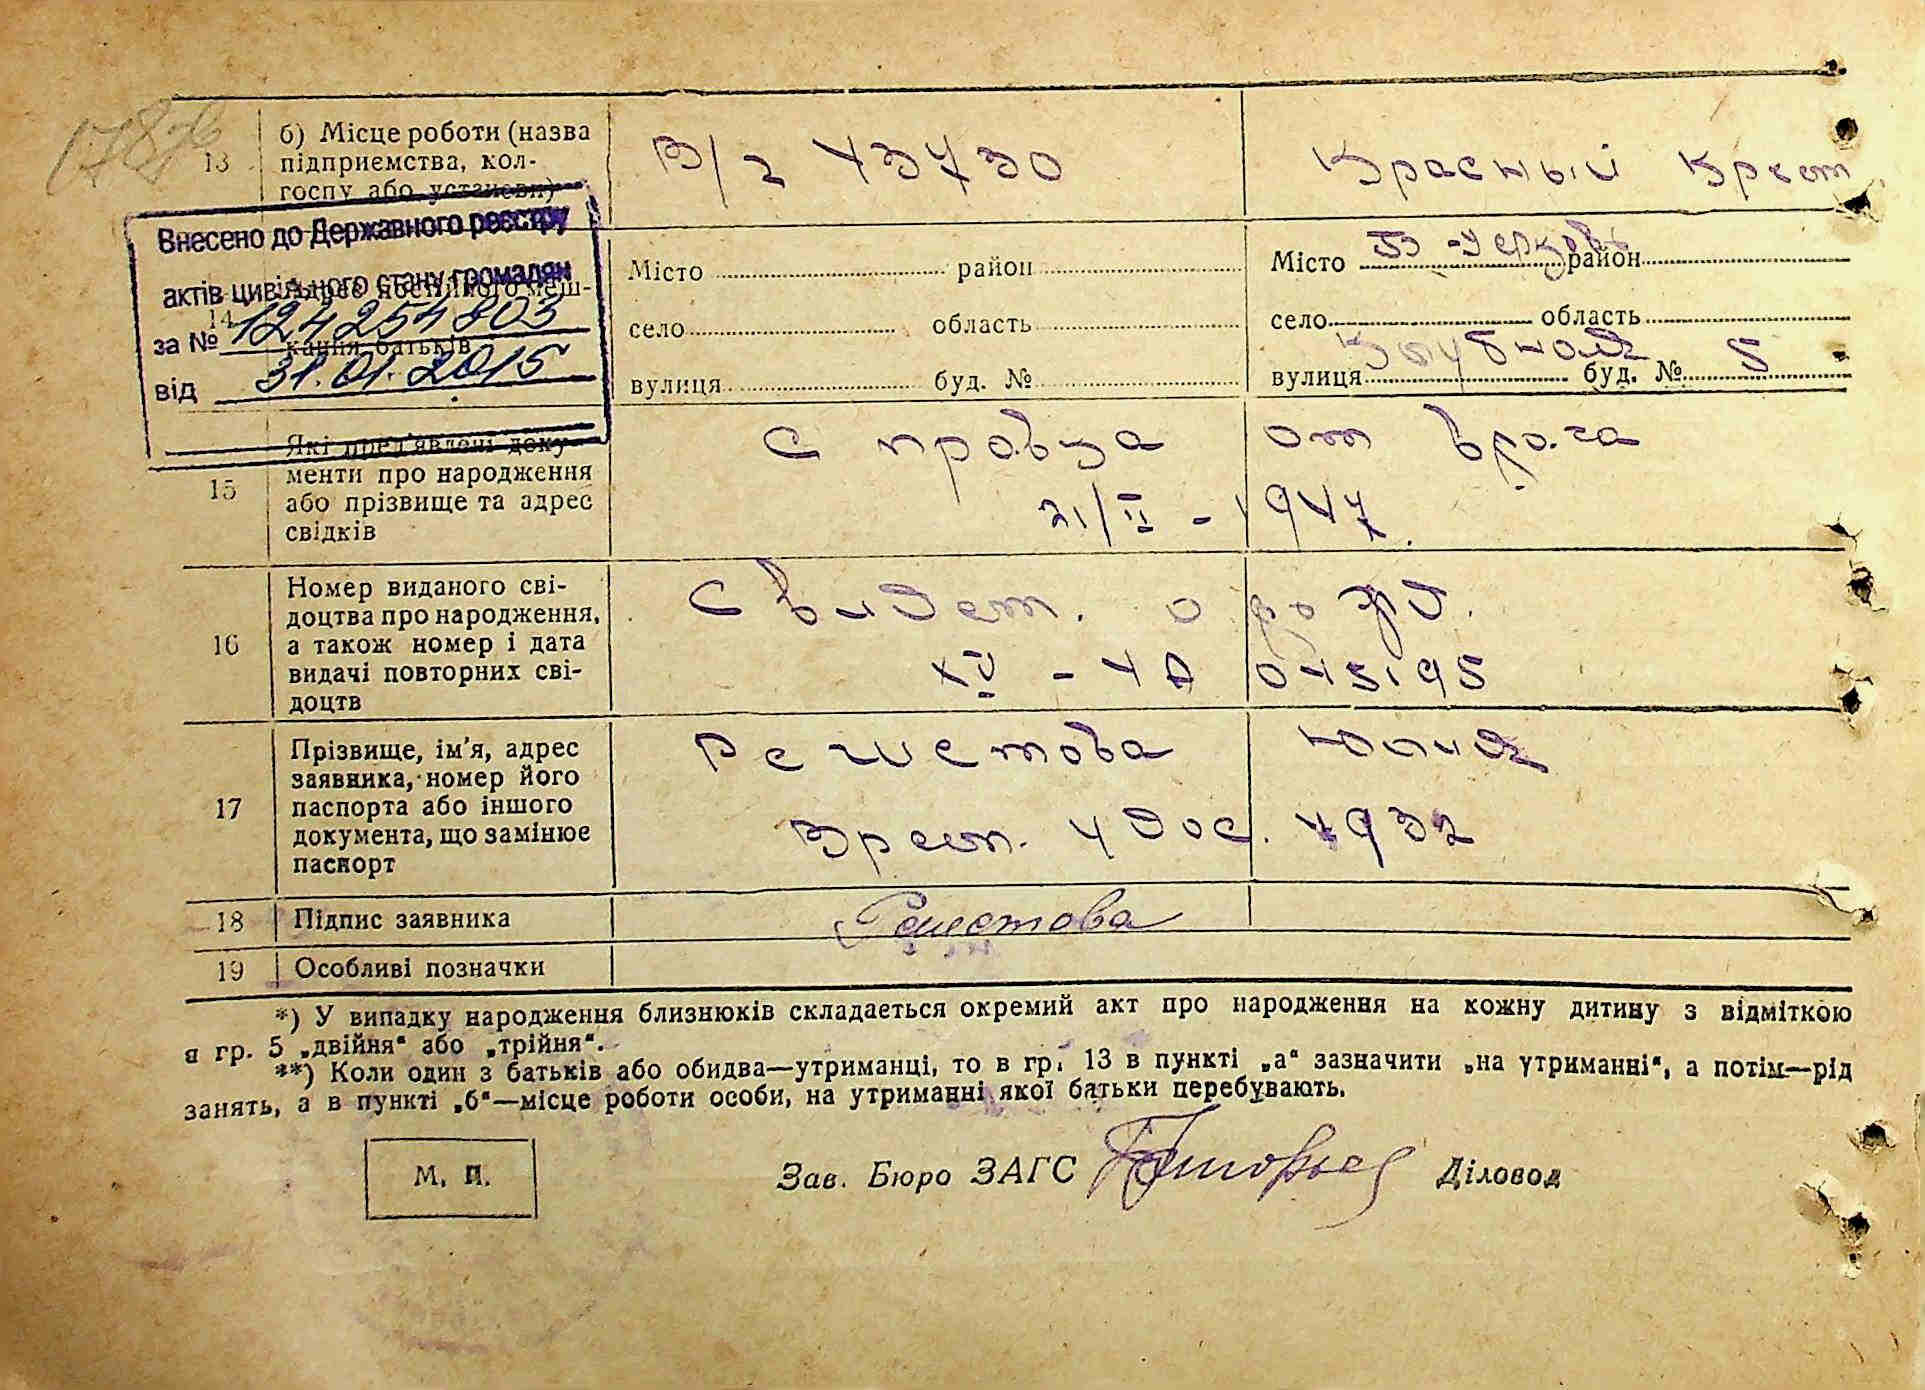 13
б) Місце роботи (назва
підприємства, кол-
госпу або установи)
43730
Красный Крест
Внесено до Державного реєстру
актів цивільного стану громадян
за № 124254803
від 31.01.2015
14
Адрес постійного меш-
кання батьків
Місто район
село область
вулиця буд. №
Місто Б-Церковь район
село область
вулиця Клубная буд. № 5
15
Які пред'явлені доку-
менти про народження
або прізвище та адрес
свідків
Справка от врача
21/II - 1947
16
Номер виданого сві-
доцтва про народження,
а також номер і дата
видачі повторних сві-
доцтв
Свидет. о рожд.
045195
17
Прізвище, ім'я, адрес
заявника, номер його
паспорта або іншого
документа, що замінює
паспорт
Решетова Юлия
18
Підпис заявника
Решетова
19
Особливі позначки
*) У випадку народження близнюків складається окремий акт про народження на кожну дитину з відміткою
в гр. 5 „двійня“ або „трійня“.
**) Коли один з батьків або обидва—утриманці, то в гр. 13 в пункті „а“ зазначити „на утриманні“, а потім—рід
занять, а в пункті „б“—місце роботи особи, на утриманні якої батьки перебувають.
М. П.
Зав. Бюро ЗАГС
Діловод